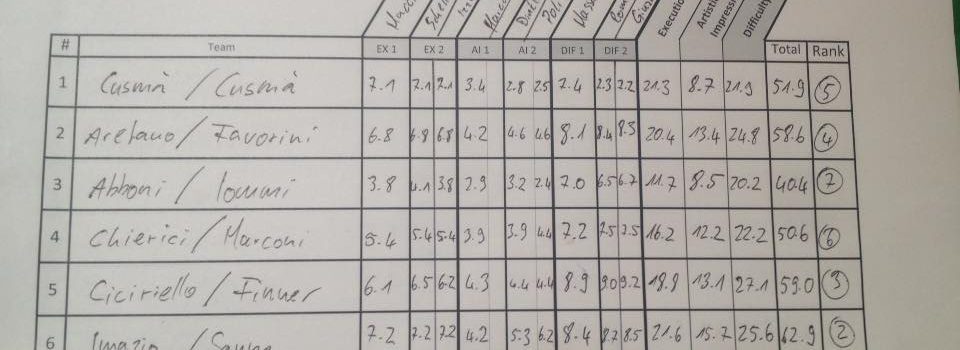 Execution Artistic Impression Difficulty
# Team EX 1 EX 2 AI 1 AI 2 DIF 1 DIF 2 Total Rank
1 Cusmà / Cusmà 7.1 7.1 7.1 3.4 2.8 2.5 7.4 7.3 7.2 21.3 8.7 21.9 51.9 5
2 Aretano / Favorini 6.8 6.8 6.8 4.2 4.6 4.6 8.1 8.4 8.3 20.4 13.4 24.8 58.6 4
3 Abboni / Iommi 3.8 4.1 3.8 2.9 3.2 2.4 7.0 6.5 6.7 11.7 8.5 20.2 40.4 7
4 Chierici / Marconi 5.4 5.4 5.4 3.9 3.9 4.4 7.2 7.5 7.5 16.2 12.2 22.2 50.6 6
5 Ciciriello / Finner 6.1 6.5 6.2 4.3 4.4 4.4 8.9 9.0 9.2 18.8 13.1 27.1 59.0 3
6 7.2 7.2 7.2 4.2 5.3 6.2 8.4 8.7 8.5 21.6 15.7 25.6 62.9 2